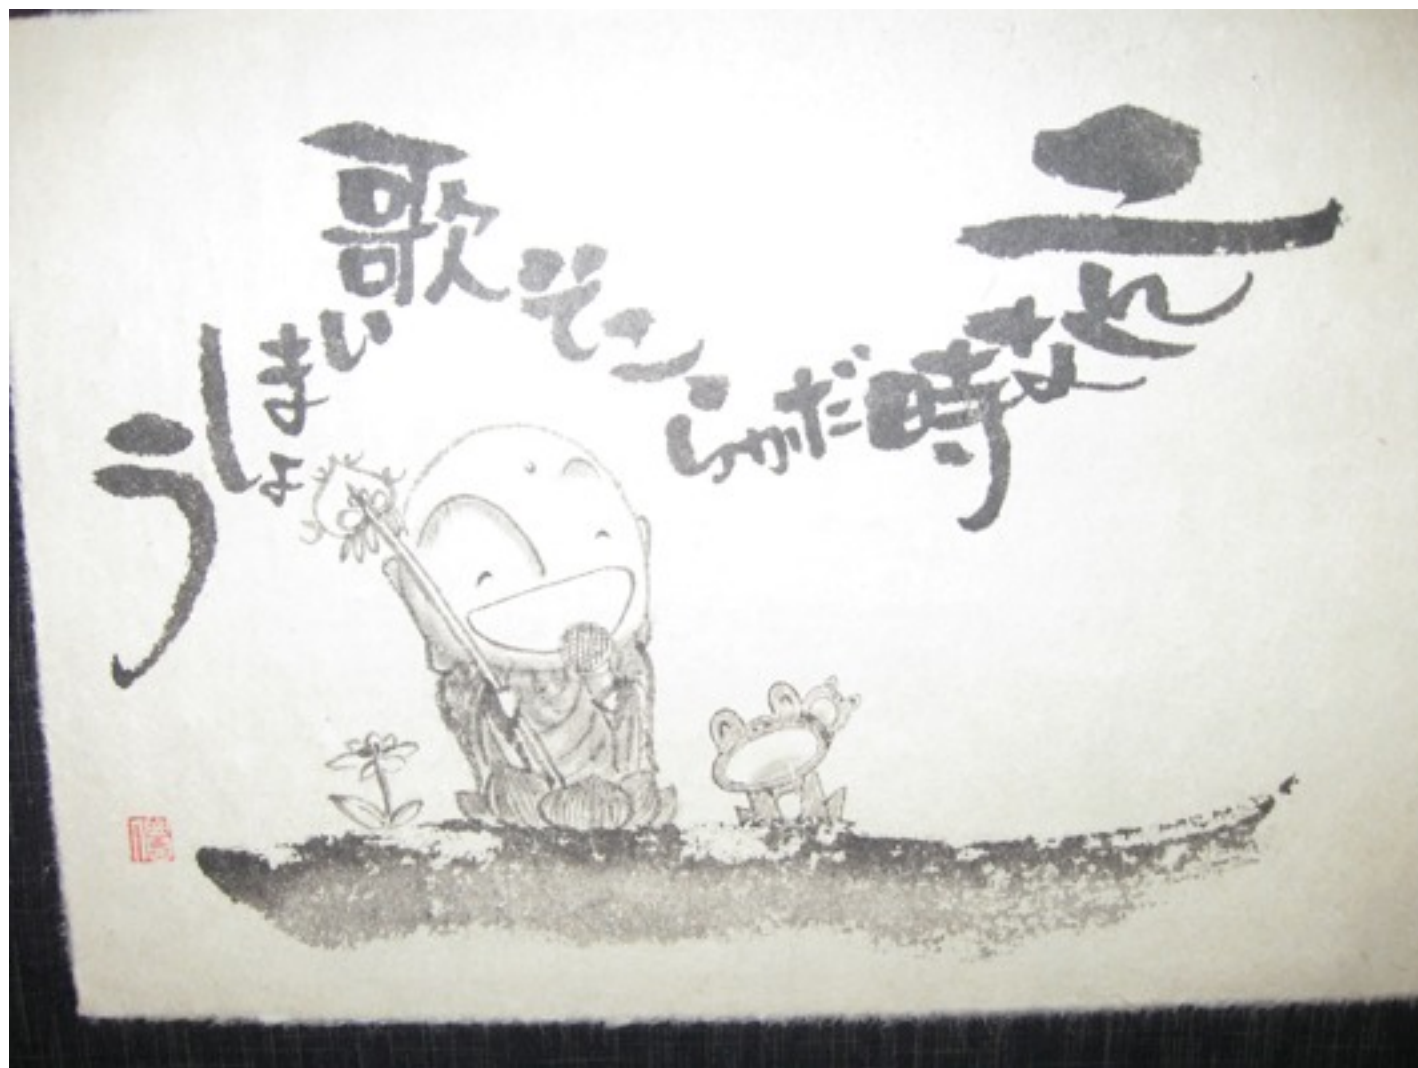 こんな時だからこそ歌いましょう